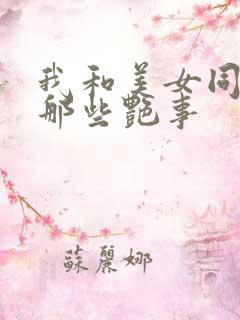 我和美女同
那些艷事
蘇麗娜